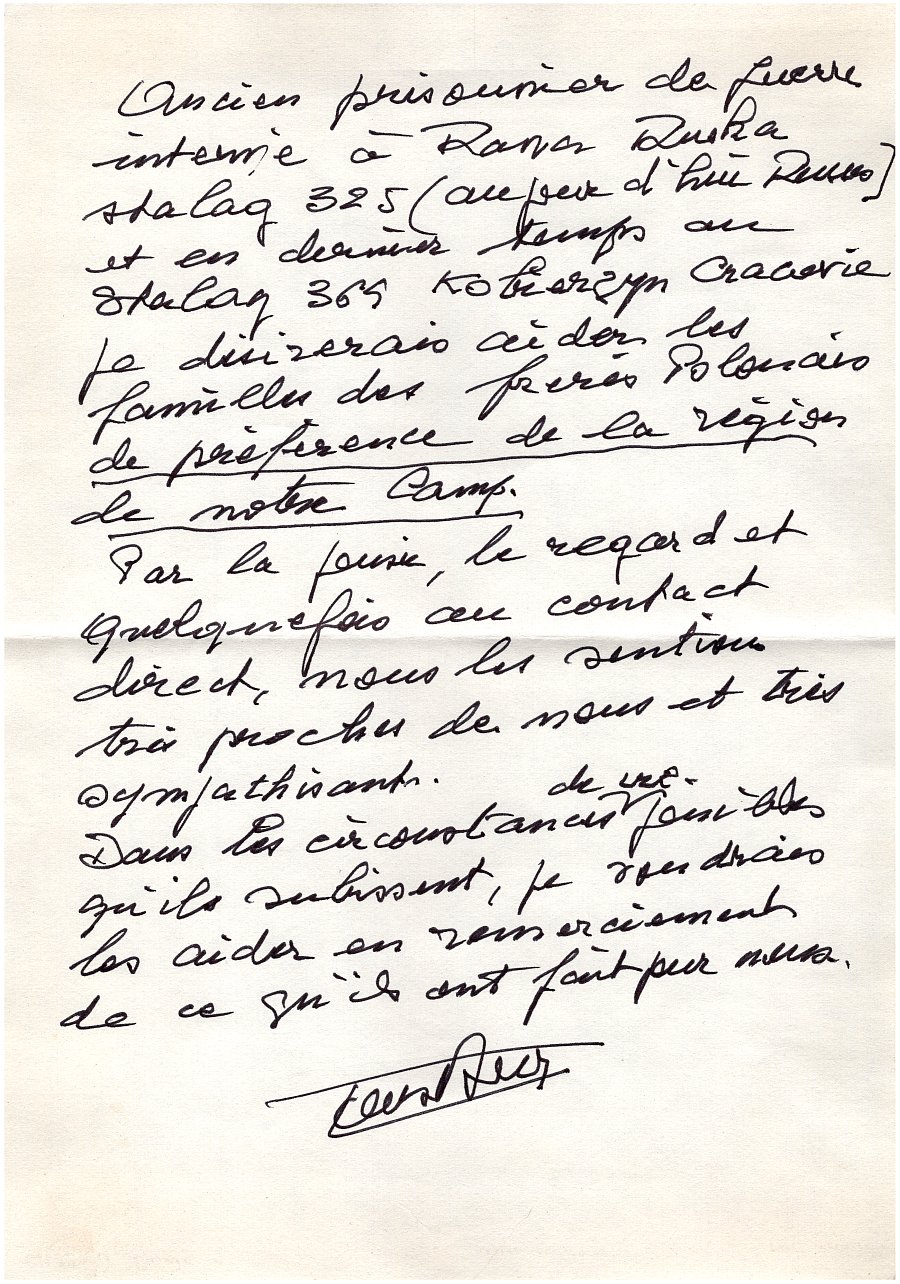 Ancien prisonnier de guerre
interné à Rawa Ruska
stalag 325 (aujour d'hui Russe)
et en dernier temps au
Stalag 369 Kobierzyn Cracovie
je désirerais aider les
familles des frères Polonais
de préférence de la région
de notre Camp.
Par la pensée, le regard et
quelquefois au contact
direct, nous les sentions
très proches de nous et très
sympathisants.
Dans les circonstances de vie pénibles
qu'ils subissent, je voudrais
les aider en remerciement
de ce qu'ils ont fait pur nous.